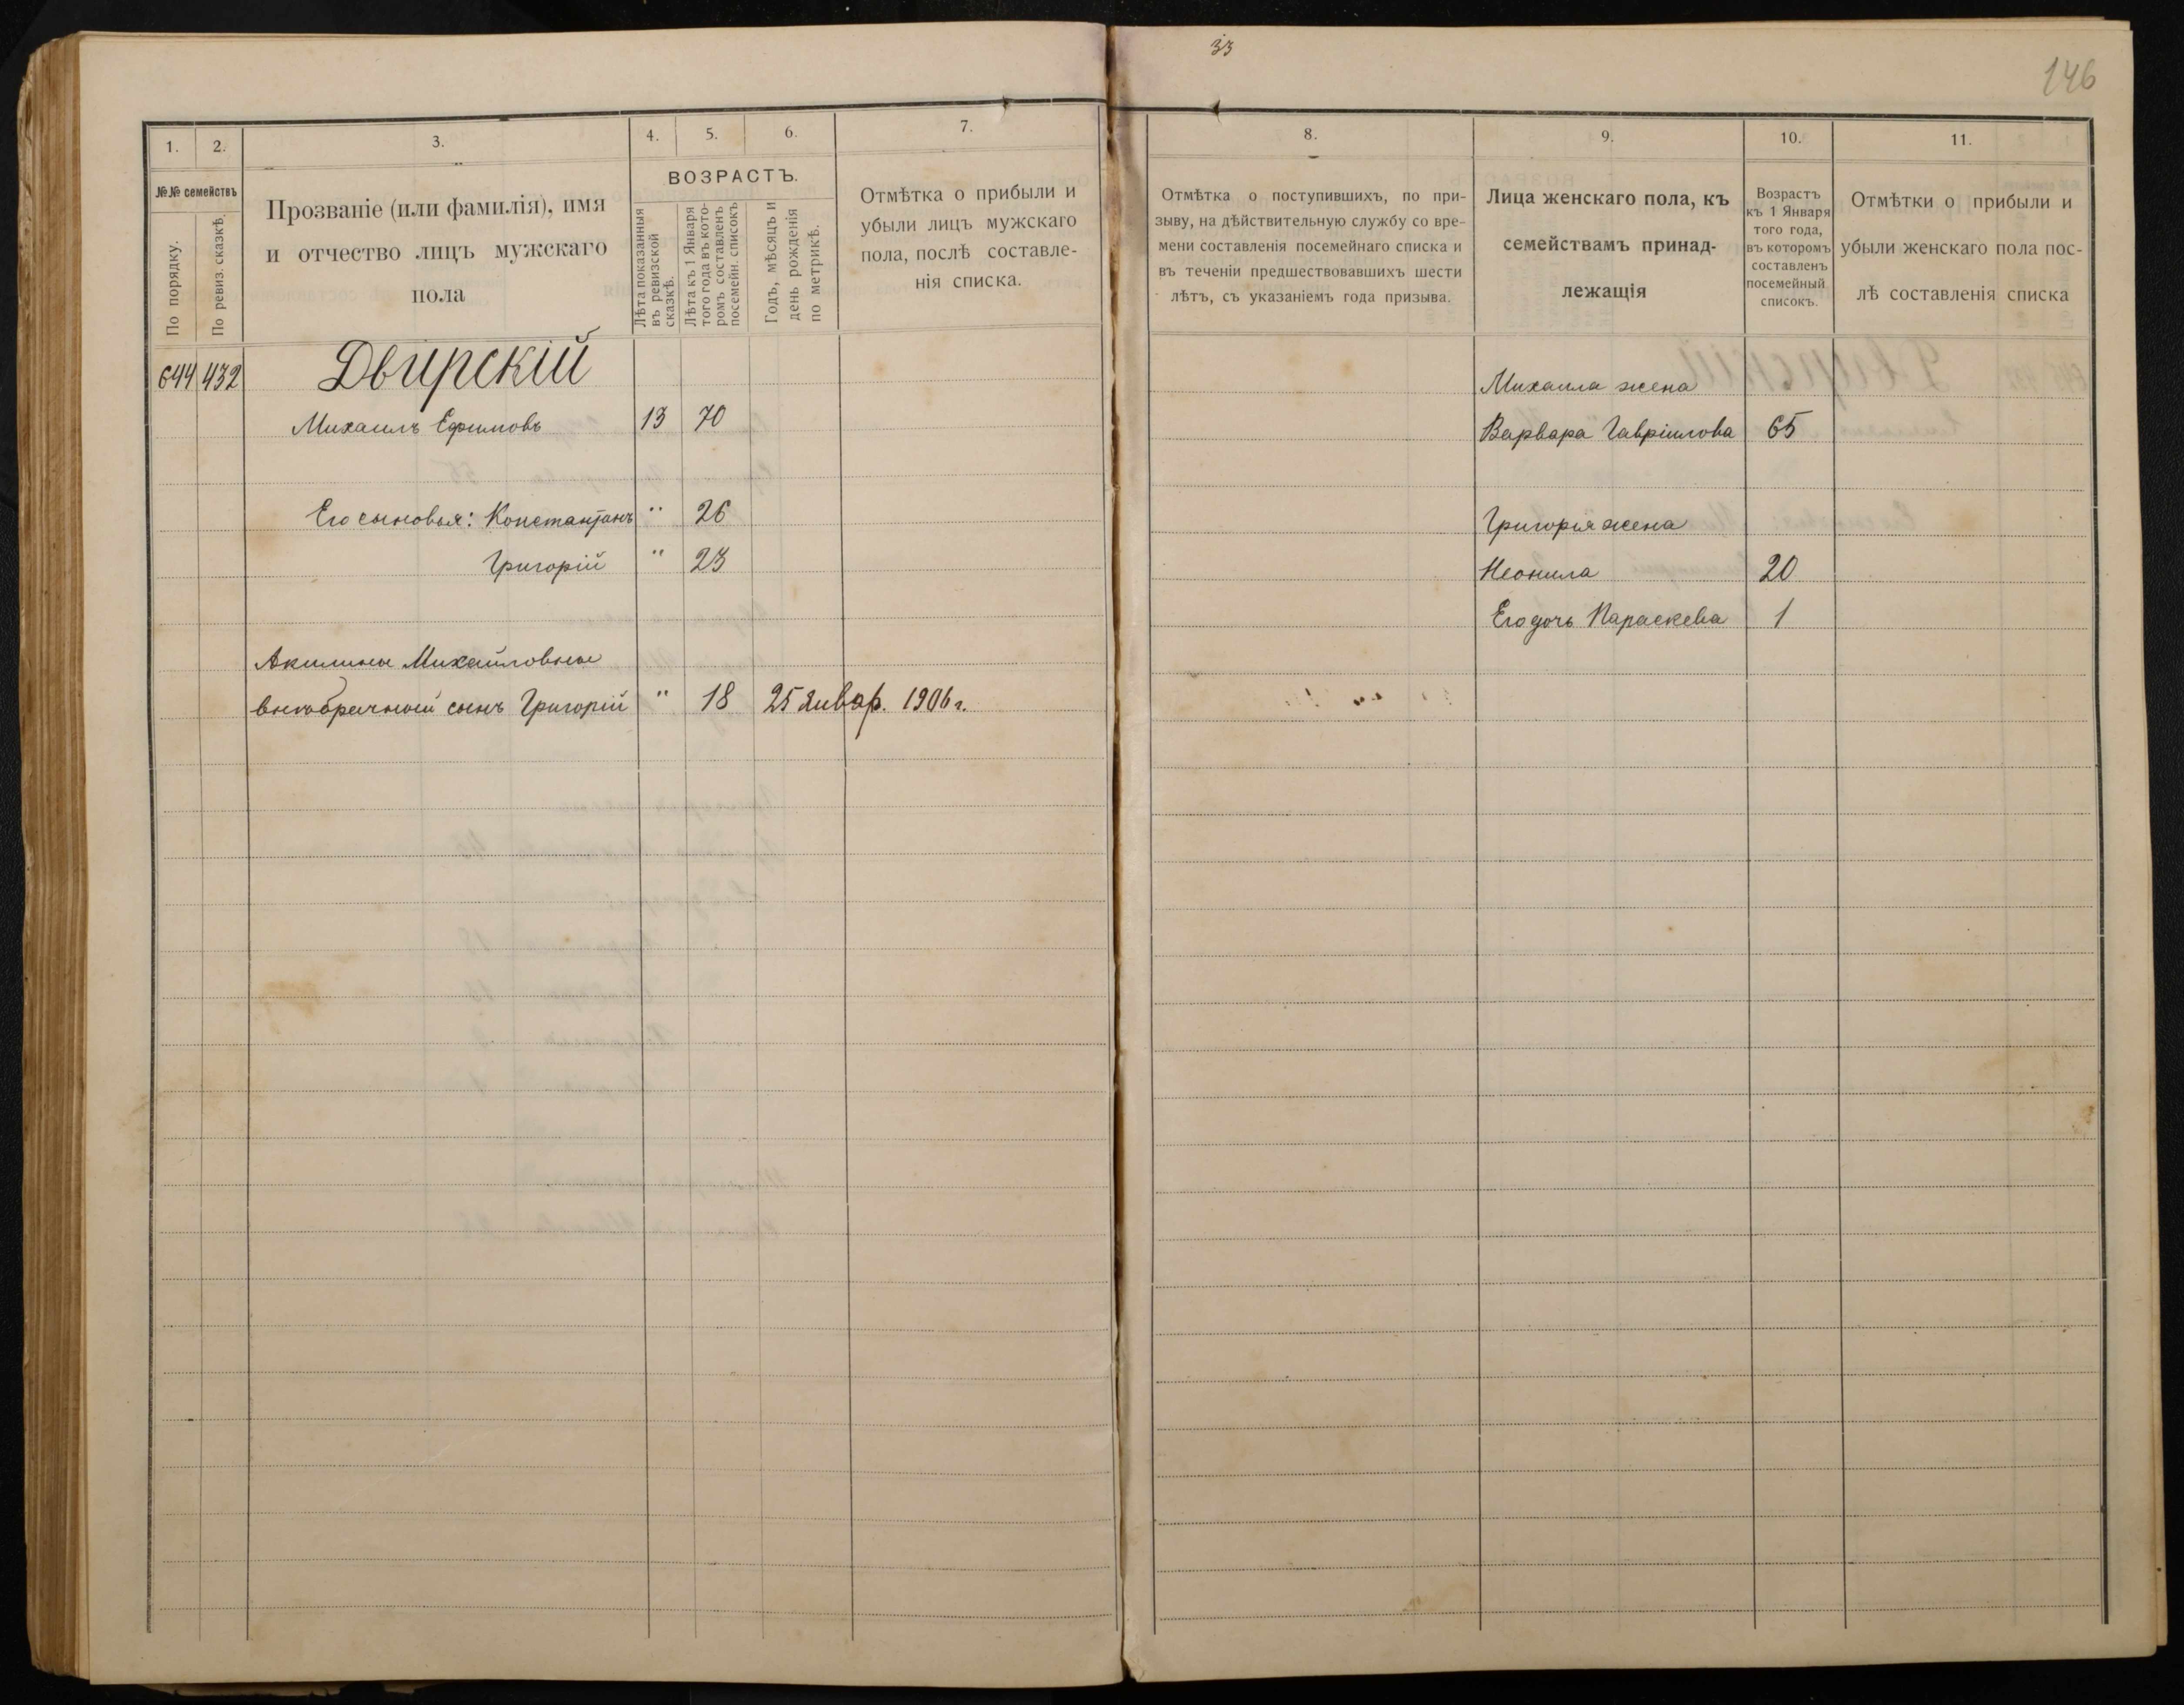 33
146
1.
2.
3.
4.
5.
6.
7.
№№ семействъ
По порядку.
По ревиз. сказкѣ.
Прозваніе (или фамилія), имя
и отчество лицъ мужскаго
пола
ВОЗРАСТЪ.
Лѣта показанныя
въ ревизской
сказкѣ.
Лѣта къ 1 Января
того года въ кото-
ромъ составленъ
посемейн. списокъ
Годъ, мѣсяцъ и
день рожденія
по метрикѣ.
Отмѣтка о прибыли и
убыли лицъ мужскаго
пола, послѣ составле-
нія списка.
644 432 Двирскій
Михаилъ Ефимовъ 13 70
Его сыновья: Константинъ " 26
Григорій " 23
Акилины Михайловны
внѣбрачный сынъ Григорій " 18 25 Январ. 1906 г.
8.
9.
10.
11.
Отмѣтка о поступившихъ, по при-
зыву, на дѣйствительную службу со вре-
мени составленія посемейнаго списка и
въ теченіи предшествовавшихъ шести
лѣтъ, съ указаніемъ года призыва.
Лица женскаго пола, къ
семействамъ принад-
лежащія
Возрастъ
къ 1 Января
того года,
въ которомъ
составленъ
посемейный
списокъ.
Отмѣтки о прибыли и
убыли женскаго пола пос-
лѣ составленія списка
Михаила жена
Варвара Гавріилова 65
Григорія жена
Неонила 20
Его дочь Параскева 1